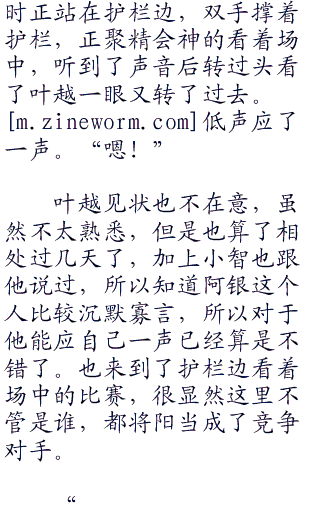 时正站在护栏边，双手撑着
护栏，正聚精会神的看着场
中，听到了声音后转过头看
了叶越一眼又转了过去。
[m.zineworm.com]低声应了
一声。“嗯！”
叶越见状也不在意，虽
然不太熟悉，但是也算了相
处过几天了，加上小智也跟
他说过，所以知道阿银这个
人比较沉默寡言，所以对于
他能应自己一声已经算是不
错了。也来到了护栏边看着
场中的比赛，很显然这里不
管是谁，都将阳当成了竞争
对手。
“